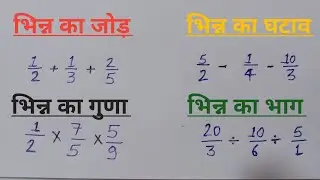 भिन्न का जोड़
1/2 + 1/3 + 2/5
भिन्न का घटाव
5/2 - 1/4 - 10/3
भिन्न का गुणा
1/2 × 7/5 × 5/9
भिन्न का भाग
20/3 ÷ 10/6 ÷ 5/1